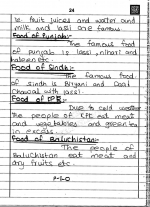 24
ie. fruit juices and water and
milk and lassi are famous.
Food of Punjab:-
The famous food
of punjab is lassi, nihari and
haleem etc.
Food of Sindh:-
The famous food
of sindh is Biryani and Daal
Chawal with lassi.
Food of KPK:-
Due to cold weather
the people of KPK eat meat
and vegetables and green tea
in excess.
Food of Baluchistan:-
The people of
Baluchistan eat meat and
dry fruits etc